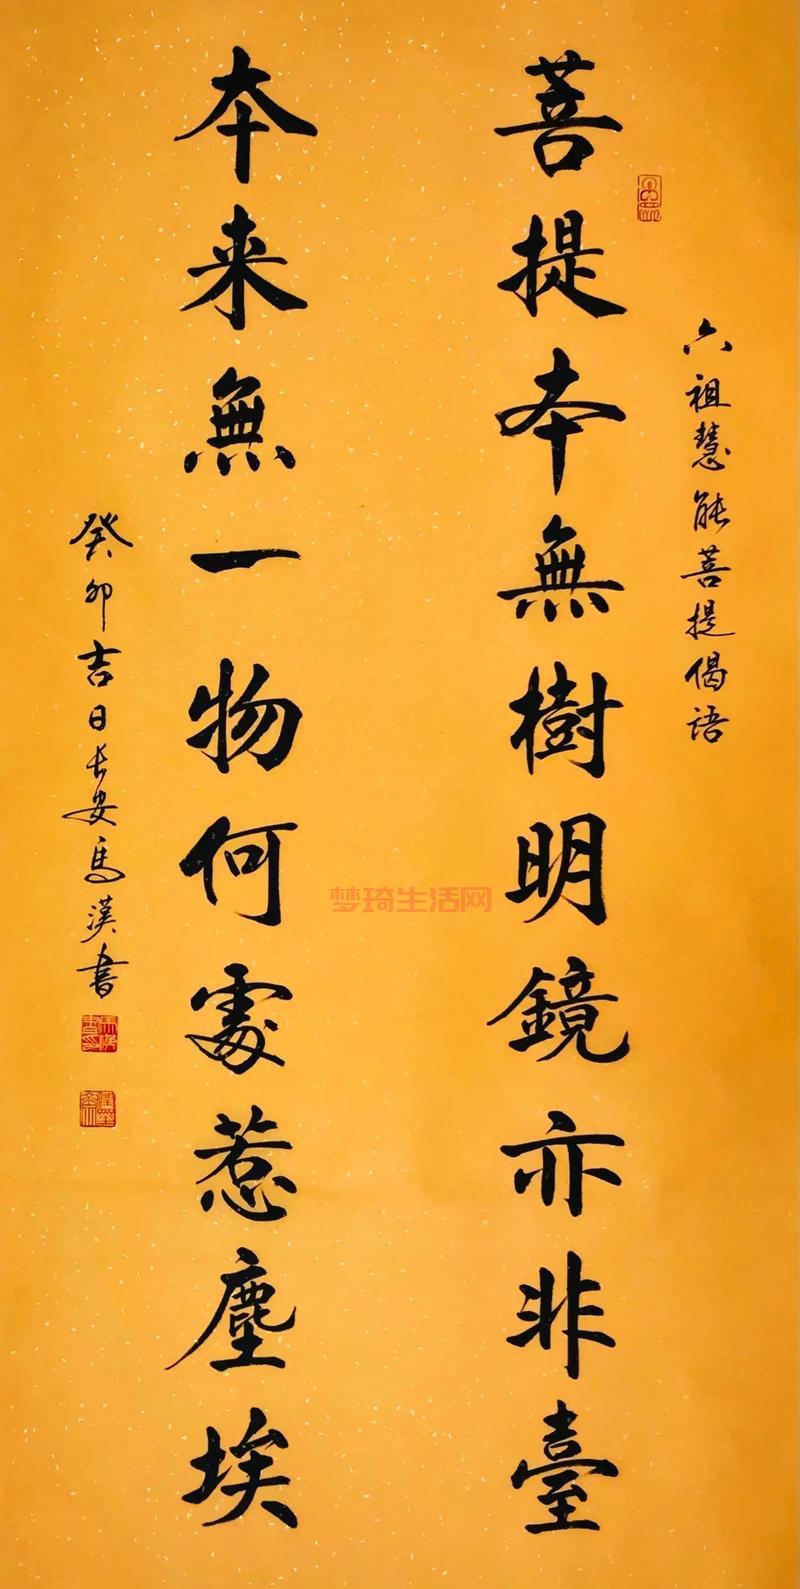 六祖慧能菩提偈语
菩提本無樹明鏡亦非臺
本来無一物何處惹塵埃
癸卯吉日长安馬漢书
梦琦生活网